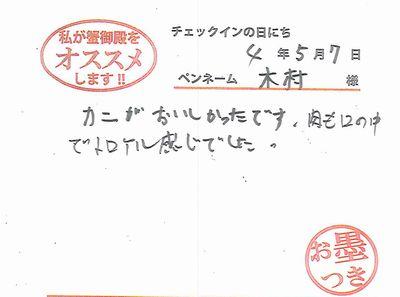 私が蟹御殿を
オススメ
します!!
チェックインの日にち
4年5月7日
ペンネーム 木村 様
カニがおいしかったです。肉も口の中
でトロケル感じでした。
お墨
つき